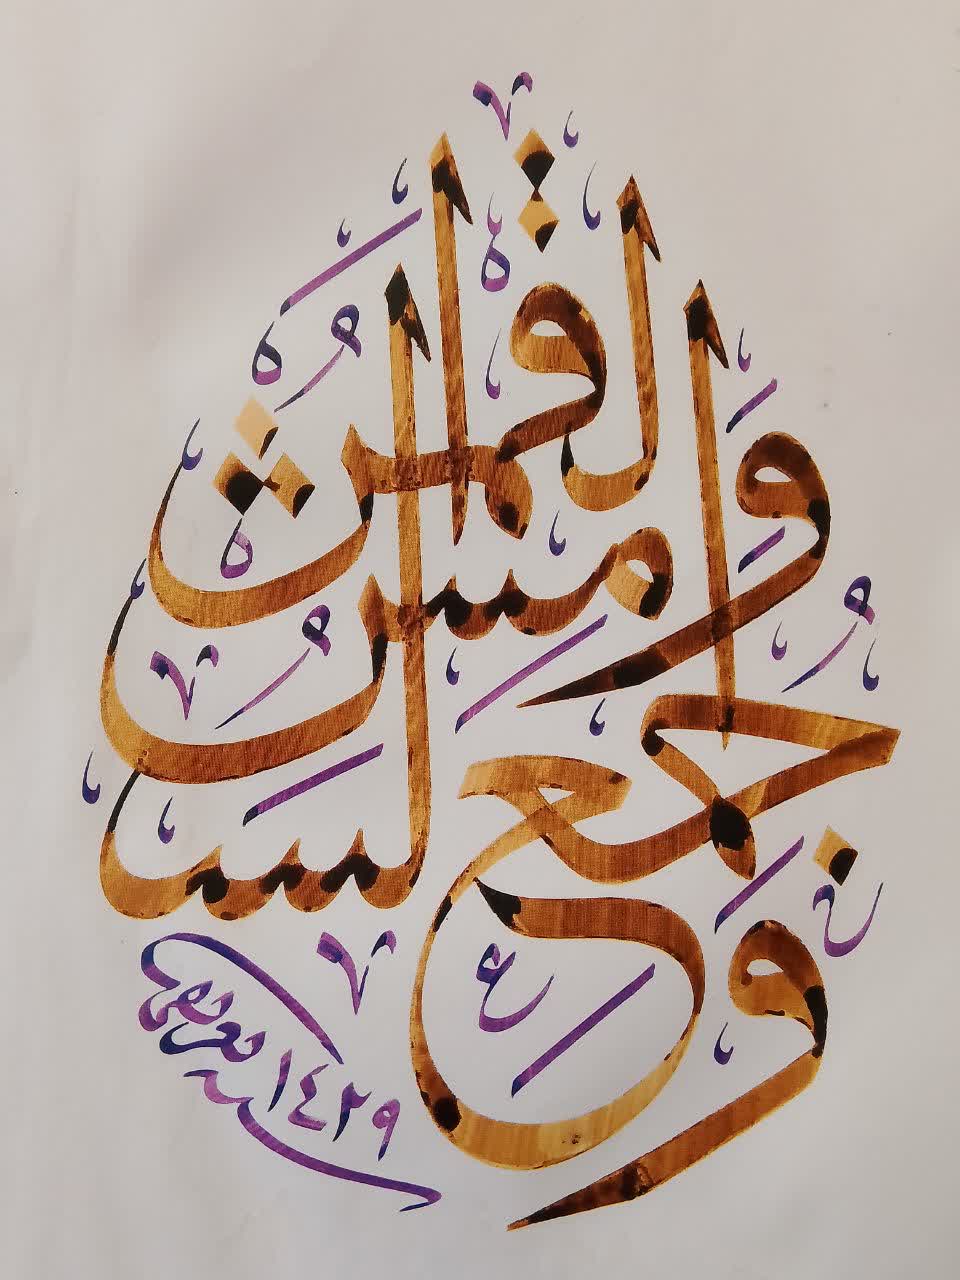 وجمع الشمس والقمر
١٤٢٩